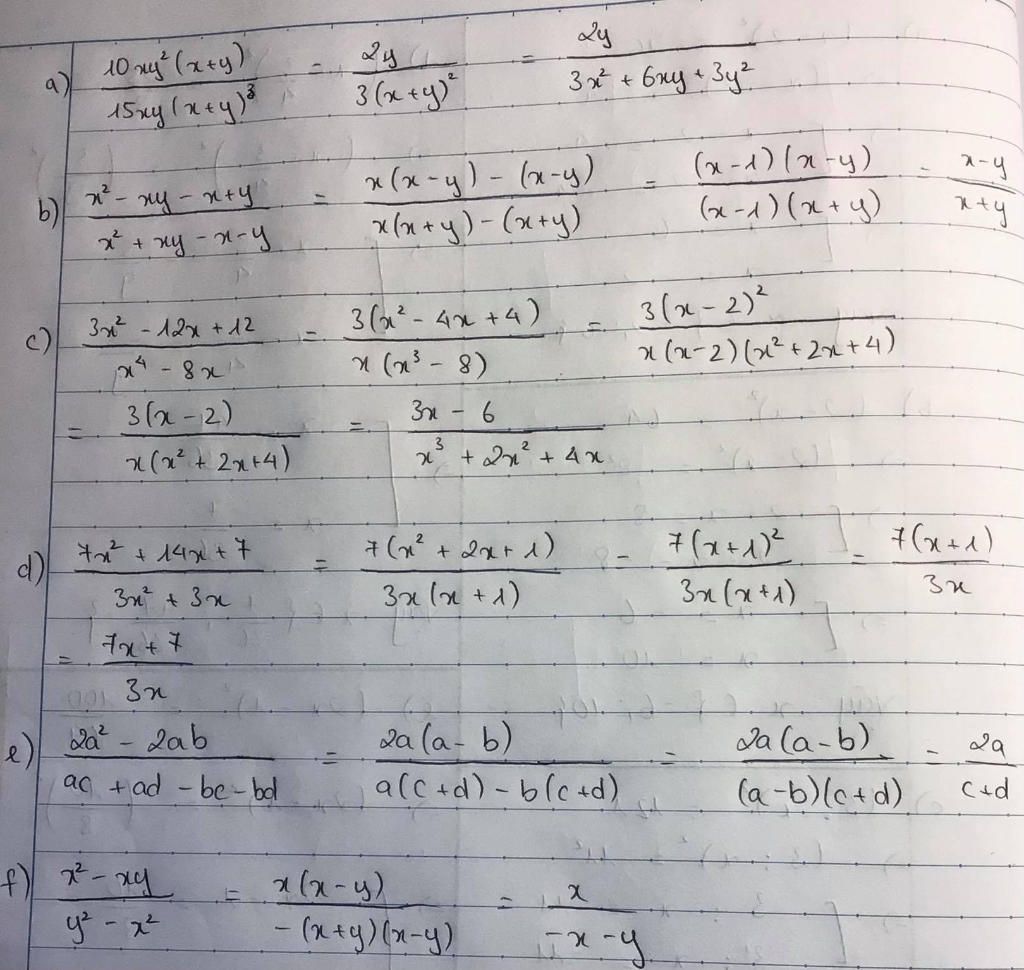 a) \frac{10xy^2(x+y)}{15xy(x+y)^3} = \frac{2y}{3(x+y)^2} = \frac{2y}{3x^2 + 6xy + 3y^2}
b) \frac{x^2 - xy - x + y}{x^2 + xy - x - y} = \frac{x(x-y) - (x-y)}{x(x+y) - (x+y)} = \frac{(x-1)(x-y)}{(x-1)(x+y)} = \frac{x-y}{x+y}
c) \frac{3x^2 - 12x + 12}{x^4 - 8x} = \frac{3(x^2 - 4x + 4)}{x(x^3 - 8)} = \frac{3(x-2)^2}{x(x-2)(x^2 + 2x + 4)}
= \frac{3(x-2)}{x(x^2 + 2x + 4)} = \frac{3x - 6}{x^3 + 2x^2 + 4x}
d) \frac{7x^2 + 14x + 7}{3x^2 + 3x} = \frac{7(x^2 + 2x + 1)}{3x(x+1)} = \frac{7(x+1)^2}{3x(x+1)} = \frac{7(x+1)}{3x}
= \frac{7x + 7}{3x}
e) \frac{2a^2 - 2ab}{ac + ad - bc - bd} = \frac{2a(a-b)}{a(c+d) - b(c+d)} = \frac{2a(a-b)}{(a-b)(c+d)} = \frac{2a}{c+d}
f) \frac{x^2 - xy}{y^2 - x^2} = \frac{x(x-y)}{-(x+y)(x-y)} = \frac{x}{-x-y}